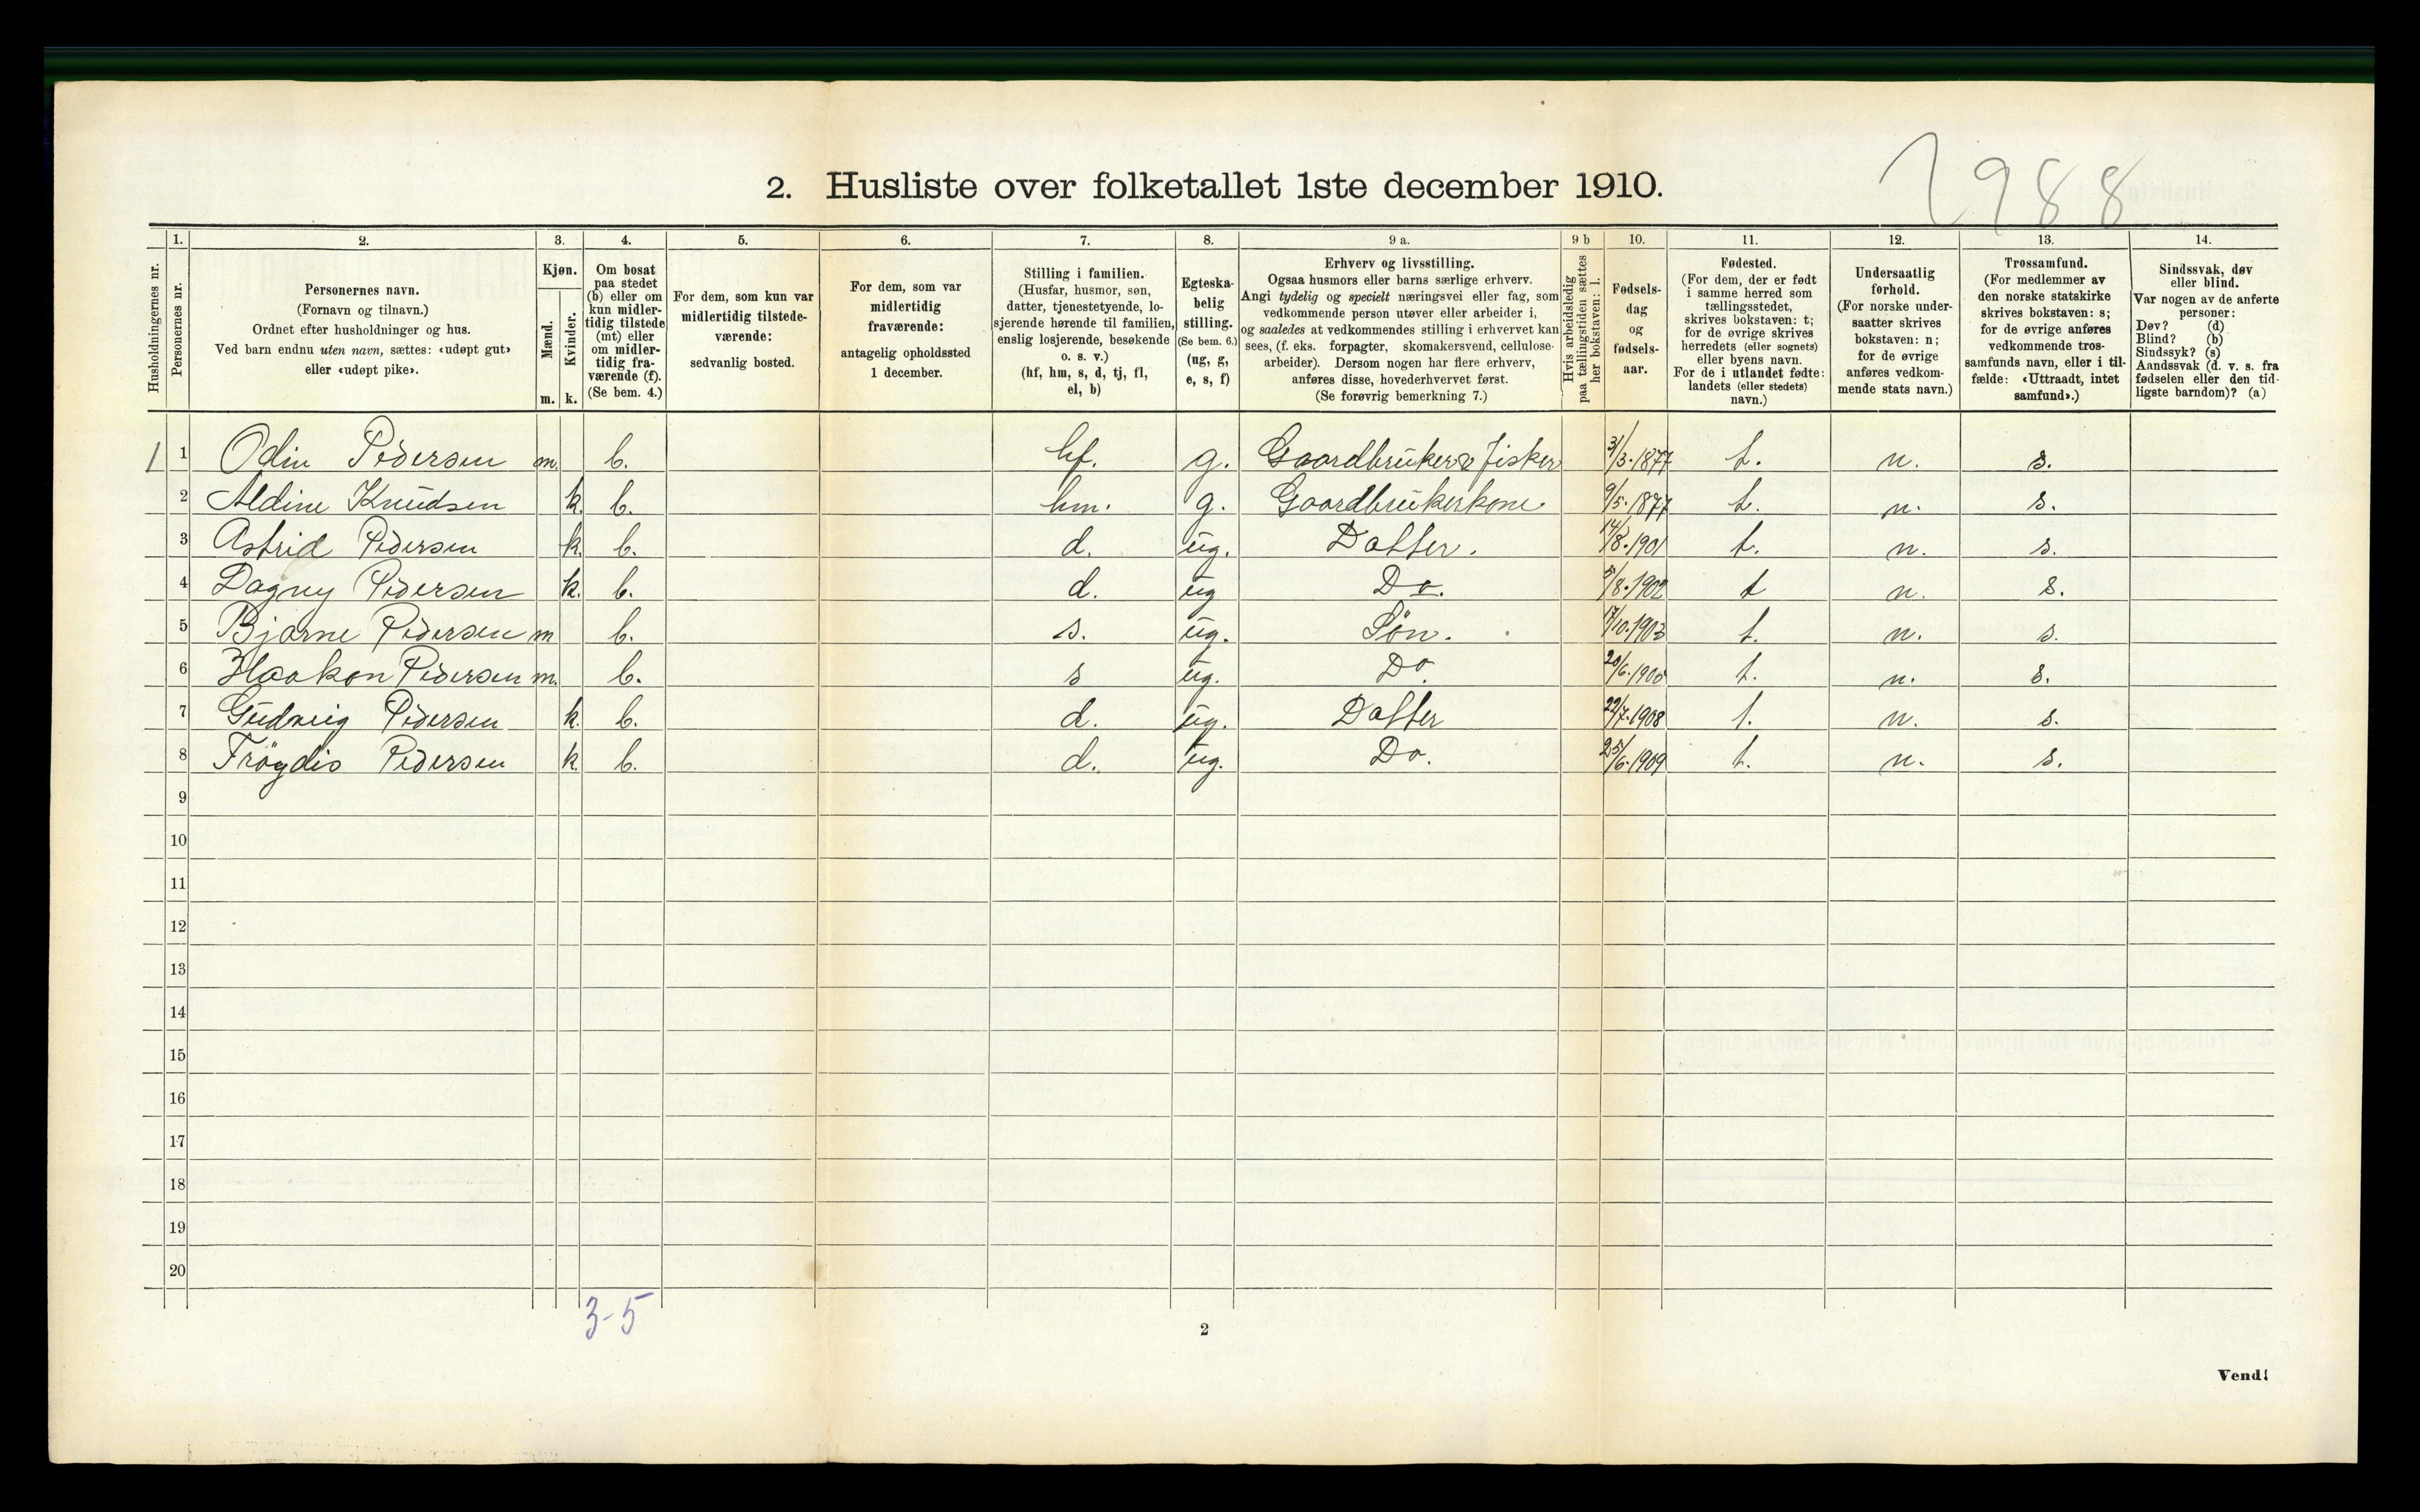 2988
2. Husliste over folketallet 1ste december 1910.
Husholdningernes nr.
1.
Personernes nr.
2.
Personernes navn.
(Fornavn og tilnavn.)
Ordnet efter husholdninger og hus.
Ved barn endnu uten navn, sættes: «udøpt gut»
eller «udøpt pike».
3.
Kjøn.
Mænd.
Kvinder.
m. k.
4.
Om bosat
paa stedet
(b) eller om
kun midler-
tidig tilstede
(mt) eller
om midler-
tidig fra-
værende (f).
(Se bem. 4.)
5.
For dem, som kun var
midlertidig tilstede-
værende:
sedvanlig bosted.
6.
For dem, som var
midlertidig
fraværende:
antagelig opholdssted
1 december.
7.
Stilling i familien.
(Husfar, husmor, søn,
datter, tjenestetyende, lo-
sjerende hørende til familien,
enslig losjerende, besøkende
o. s. v.)
(hf, hm, s, d, tj, fl,
el, b)
8.
Egteska-
belig
stilling.
(Se bem. 6.)
(ug, g,
e, s, f)
9 a.
Erhverv og livsstilling.
Ogsaa husmors eller barns særlige erhverv.
Angi tydelig og specielt næringsvei eller fag, som
vedkommende person utøver eller arbeider i,
og saaledes at vedkommendes stilling i erhvervet kan
sees, (f. eks. forpagter, skomakersvend, cellulose-
arbeider). Dersom nogen har flere erhverv,
anføres disse, hovederhvervet først.
(Se forøvrig bemerkning 7.)
9 b
Hvis arbeidsledig
paa tællingstiden sættes
her bokstaven: l.
10.
Fødsels-
dag
og
fødsels-
aar.
11.
Fødested.
(For dem, der er født
i samme herred som
tællingsstedet,
skrives bokstaven: t;
for de øvrige skrives
herredets (eller sognets)
eller byens navn.
For de i utlandet fødte:
landets (eller stedets)
navn.)
12.
Undersaatlig
forhold.
(For norske under-
saatter skrives
bokstaven: n;
for de øvrige
anføres vedkom-
mende stats navn.)
13.
Trossamfund.
(For medlemmer av
den norske statskirke
skrives bokstaven: s;
for de øvrige anføres
vedkommende tros-
samfunds navn, eller i til-
fælde: «Uttraadt, intet
samfund».)
14.
Sindssvak, døv
eller blind.
Var nogen av de anførte
personer:
Døv? (d)
Blind? (b)
Sindssyk? (s)
Aandssvak (d. v. s. fra
fødselen eller den tid-
ligste barndom)? (a)
1 1 Odin Pedersen m. b. hf. g. Gaardbruker & Fisker 31/3.1877 t. n. s.
2 Aldine Knudsen k. b. hm. g. Gaardbrukerkone 9/5.1877 t. n. s.
3 Astrid Pedersen k. b. d. ug. Datter. 14/8.1901 t. n. s.
4 Dagny Pedersen k. b. d. ug Do. 5/8.1902 t n. s.
5 Bjarne Pedersen m b. s. ug. Søn. 17/10.1903 t. n. s.
6 Haakon Pedersen m. b. s ug. Do. 20/6.1905 t. n. s.
7 Gudveig Pedersen k. b. d. ug. Datter 22/7.1908 t. n. s.
8 Frøydis Pedersen k. b. d. ug. Do. 25/6.1909 t. n. s.
9
10
11
12
13
14
15
16
17
18
19
20
3-5
2
Vend!